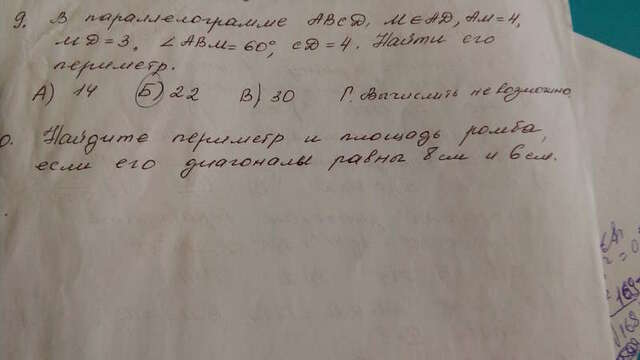 9. В параллелограмме ABCD, M∈AD, AM=4,
MD=3, ∠ABM=60°, CD=4. Найти его
периметр.
А) 14 Б) 22 В) 30 Г. Вычислить невозможно
0. Найдите периметр и площадь ромба,
если его диагонали равны 8см и 6см.